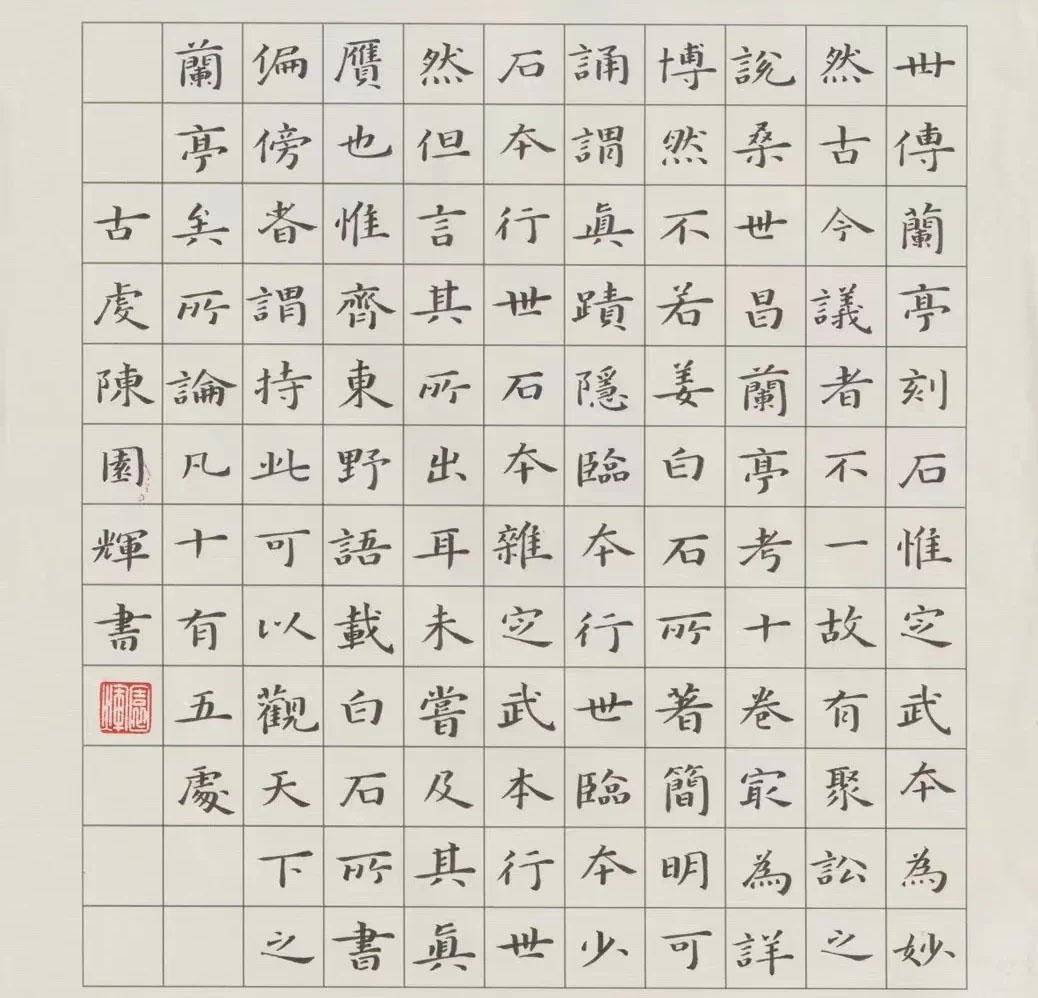 世傳蘭亭刻石惟定武本為妙
然古今議者不一故有聚訟之
說桑世昌蘭亭考十卷㝡為詳
博然不若姜白石所著簡明可
誦謂眞蹟隱臨本行世臨本少
石本行世石本雜定武本行世
然但言其所出耳未嘗及其眞
贋也惟齊東野語載白石所書
偏傍者謂持此可以觀天下之
蘭亭矣所論凡十有五處
古虔陳園輝書
園輝